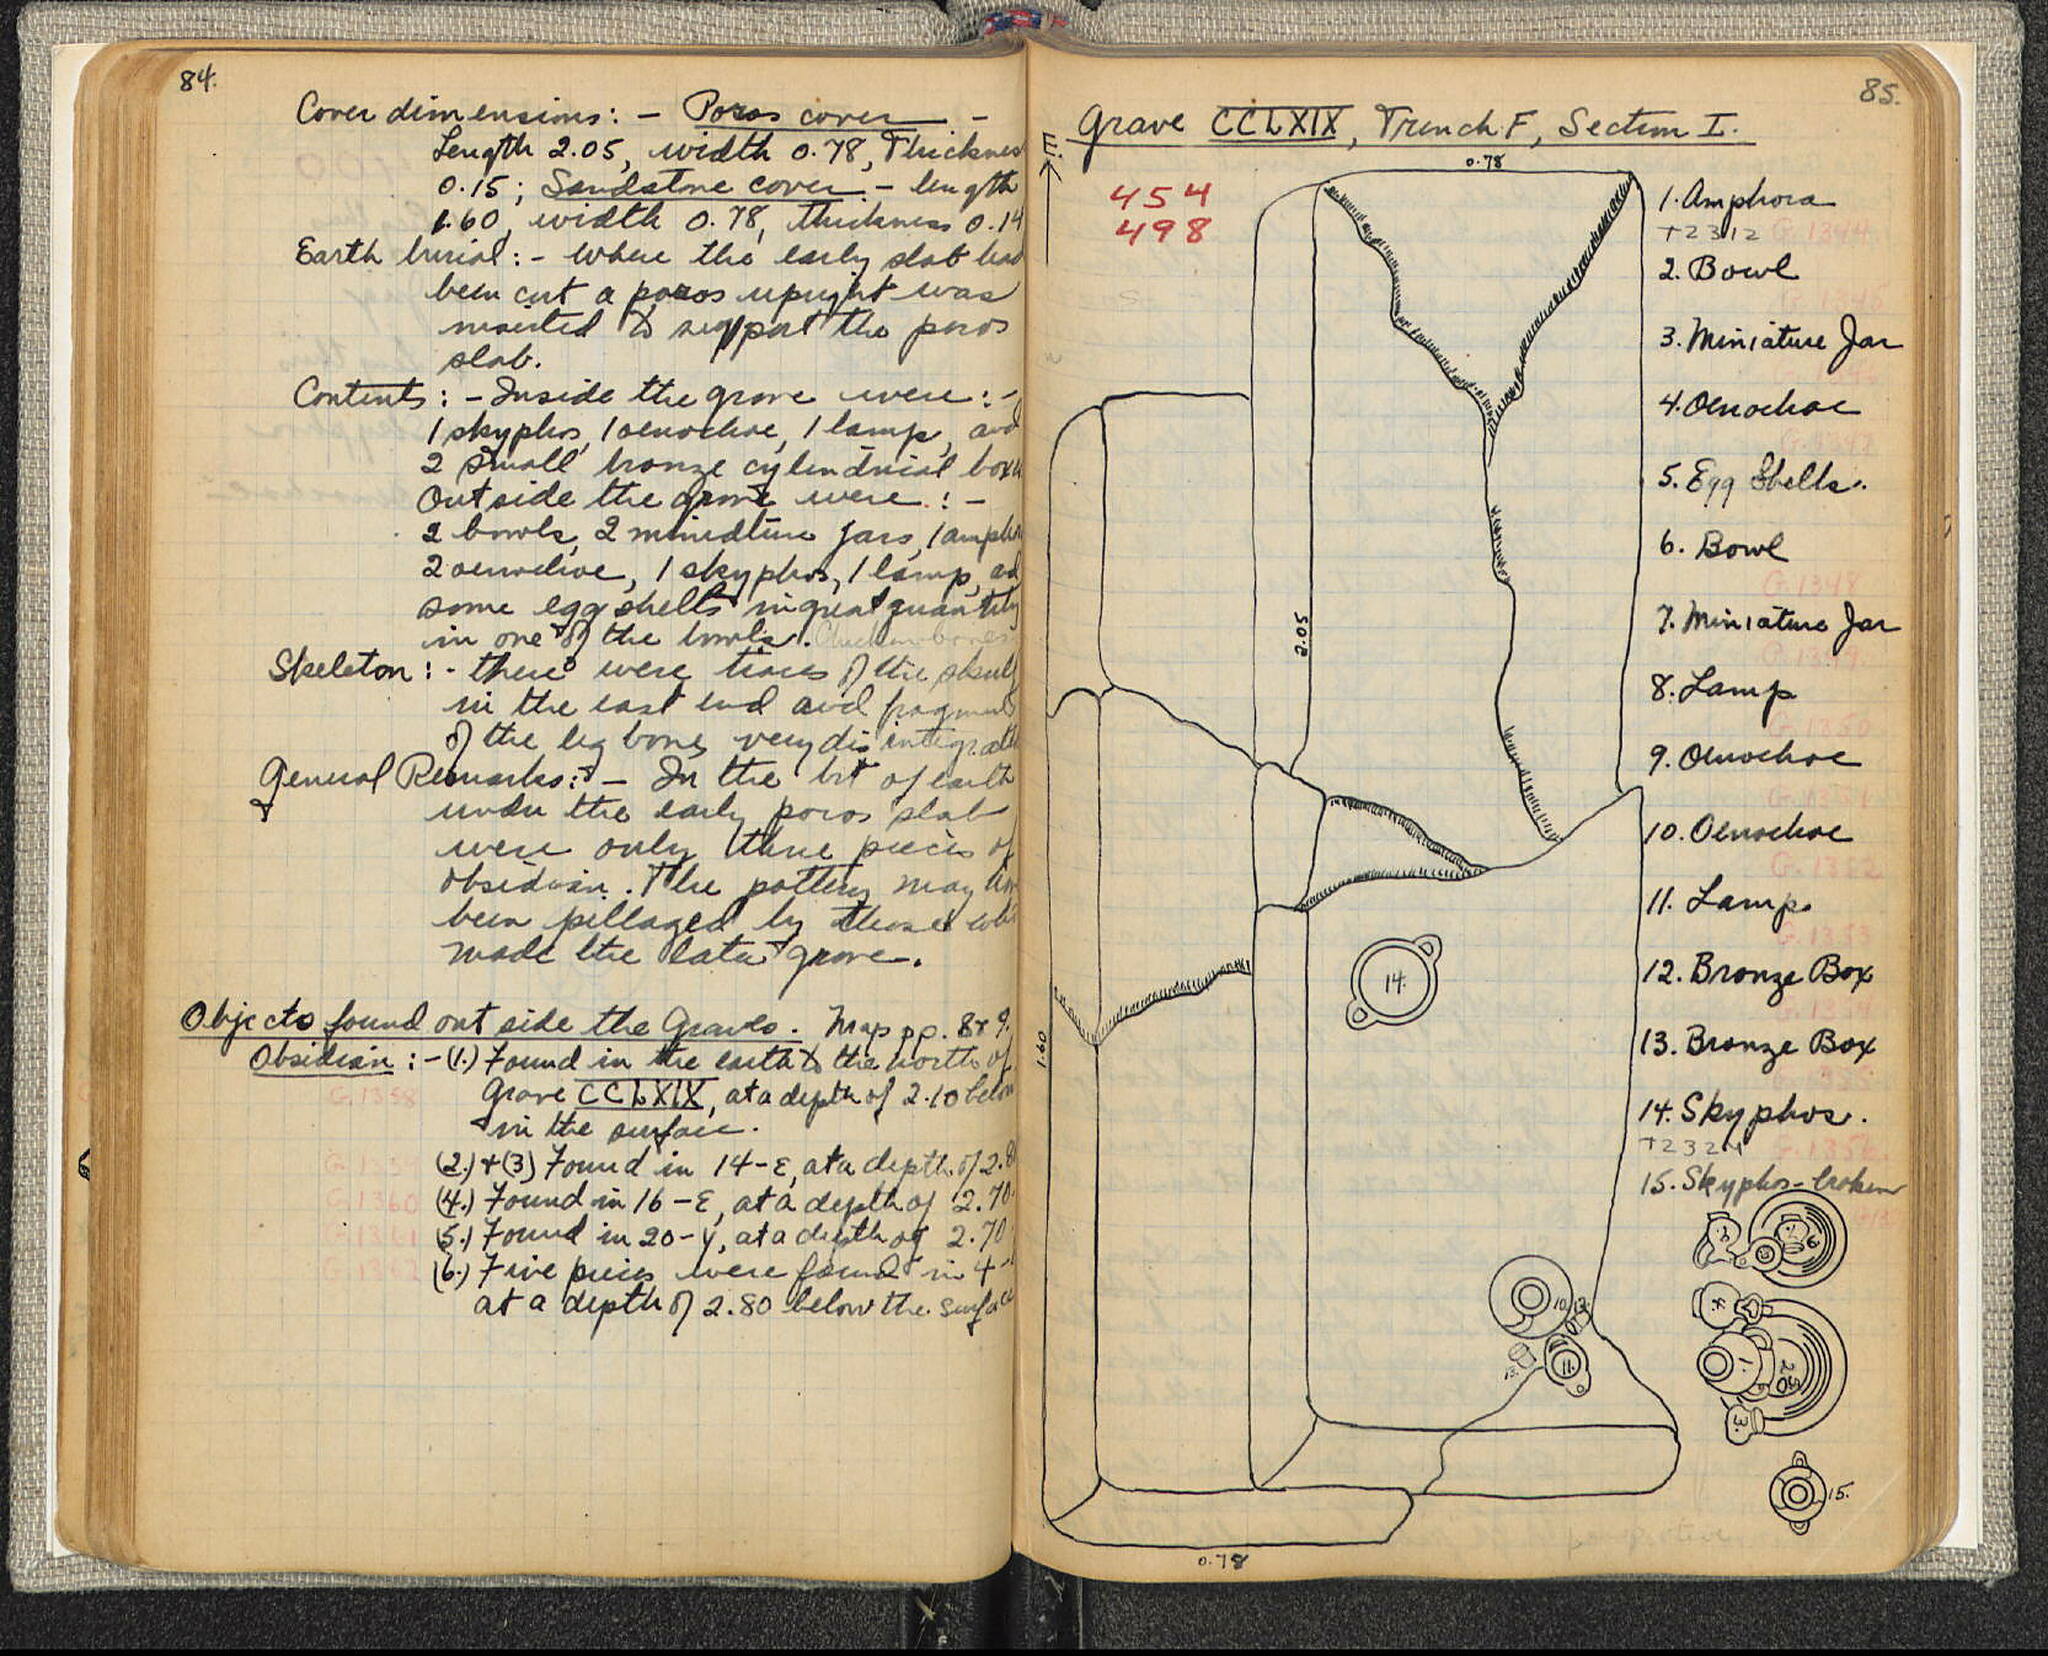 84.
Cover dimensions: - Poros cover -
Length 2.05, width 0.78, Thickness
0.15; Sandstone cover - length
1.60, width 0.78, thickness 0.14
Earth burial: - Where the early slab had
been cut a poros upright was
inserted to support the poros
slab.
Contents: - Inside the grave were: -
1 skyphos, 1 oenochoe, 1 lamp, and
2 small bronze cylindrical boxes
Outside the grave were: -
2 bowls, 2 miniature jars, 1 amphora
2 oenochoe, 1 skyphos, 1 lamp, and
some egg shells in great quantity
in one of the bowls. Chicken bones
Skeleton: - there were traces of the skull
in the east end and fragments
of the leg bones very disintegrated
General Remarks: - In the bit of earth
under the early poros slab
were only three pieces of
obsidian. The pottery may have
been pillaged by those who
made the later grave.
Objects found outside the Graves. Map pp. 8 & 9.
Obsidian: - (1.) Found in the earth to the north of
Grave CCLXIX, at a depth of 2.10 below
in the surface.
G.1358
(2.) + (3) Found in 14-E, at a depth of 2.8
G.1359
(4.) Found in 16-E, at a depth of 2.70
G.1360
(5.) Found in 20-Y, at a depth of 2.70
G.1361
(6.) Five pieces were found in 4
G.1362
at a depth of 2.80 below the surface
85.
Grave CCLXIX, Trench F, Section I.
E.
454
498
0.78
2.05
1.60
0.78
1. Amphora
T2312 G.1344
2. Bowl
G.1345
3. Miniature Jar
4. Oenochoe
G.1347
5. Egg Shells.
6. Bowl
G.1348
7. Miniature Jar
G.1349
8. Lamp
G.1350
9. Oenochoe
G.1351
10. Oenochoe
G.1352
11. Lamp
G.1353
12. Bronze Box
G.1354
13. Bronze Box
G.1355
14. Skyphos.
T2324 G.1356
15. Skyphos - broken
14.
10.
12.
13.
11.
7.
8.
6.
4.
1.
2
3.
15.
perspective